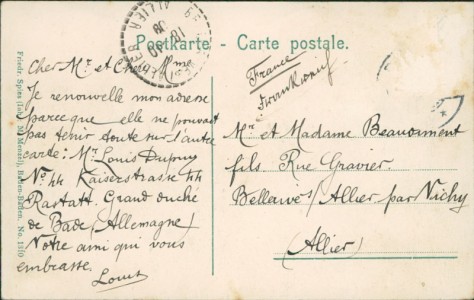 Postkarte - Carte postale.
Cher Mr et Chère Mme
Je renouvelle mon adresse
parce que elle ne pouvait
pas tenir toute sur l'autre
carte: Mr Louis Dupouy
No 44 Kaiserstrasse 44
Rastatt. Grand duché
de Bade (Allemagne)
Votre ami qui vous
embrasse.
Louis
France
Frankreich
Mr et Madame Beaucament
fils Rue Gravier.
Bellerives/Allier par Vichy
(Allier)
ALLIER
Friedr. Spies (Inh. M. Menzel), Baden-Baden. No. 1310